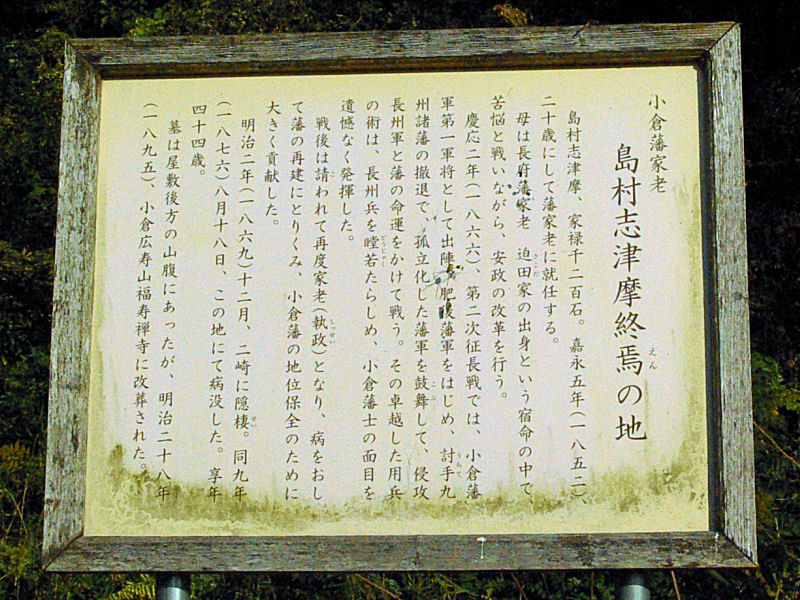 小倉藩家老
島村志津摩終焉の地
えん
島村志津摩、家禄千二百石。嘉永五年(一八五二)、
二十歳にして藩家老に就任する。
母は長府藩家老 迫田家の出身という宿命の中で、
さこだ
苦悩と戦いながら、安政の改革を行う。
慶応二年(一八六六)、第二次征長戦では、小倉藩
軍第一軍将として出陣、肥後藩軍をはじめ、討手九
うって
州諸藩の撤退で、孤立化した藩軍を鼓舞して、侵攻
こぶ
長州軍と藩の命運をかけて戦う。その卓越した用兵
の術は、長州兵を瞠若たらしめ、小倉藩士の面目を
どうじゃく
遺憾なく発揮した。
戦後は請われて再度家老(執政)となり、病をおし
こ
しっせい
て藩の再建にとりくみ、小倉藩の地位保全のために
大きく貢献した。
明治二年(一八六九)十二月、二崎に隠棲。同九年
せい
(一八七六)八月十八日、この地にて病没した。享年
四十四歳。
墓は屋敷後方の山腹にあったが、明治二十八年
(一八九五)、小倉広寿山福寿禅寺に改葬された。